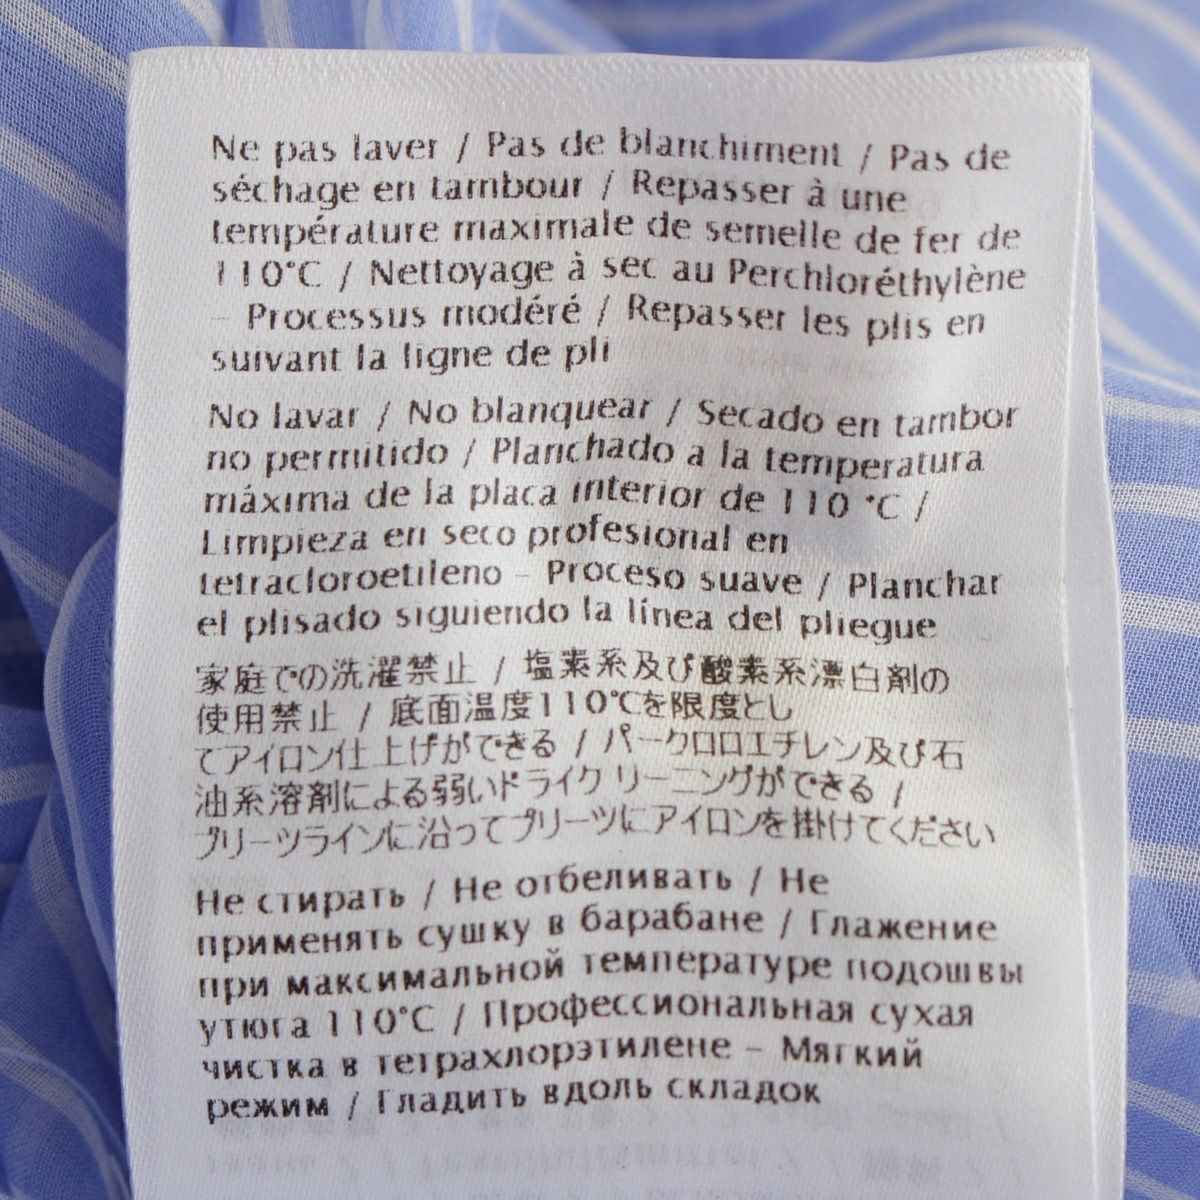 Ne pas laver / Pas de blanchiment / Pas de
séchage en tambour / Repasser à une
température maximale de semelle de fer de
110°C / Nettoyage à sec au Perchloréthylène
– Processus modéré / Repasser les plis en
suivant la ligne de pli
No lavar / No blanquear / Secado en tambor
no permitido / Planchado a la temperatura
máxima de la placa interior de 110 °C /
Limpieza en seco profesional en
tetracloroetileno – Proceso suave / Planchar
el plisado siguiendo la línea del pliegue
家庭での洗濯禁止 / 塩素系及び酸素系漂白剤の
使用禁止 / 底面温度110℃を限度とし
てアイロン仕上げができる / パークロロエチレン及び石
油系溶剤による弱いドライクリーニングができる /
プリーツラインに沿ってプリーツにアイロンを掛けてください
Не стирать / Не отбеливать / Не
применять сушку в барабане / Глажение
при максимальной температуре подошвы
утюга 110°C / Профессиональная сухая
чистка в тетрахлорэтилене – Мягкий
режим / Гладить вдоль складок